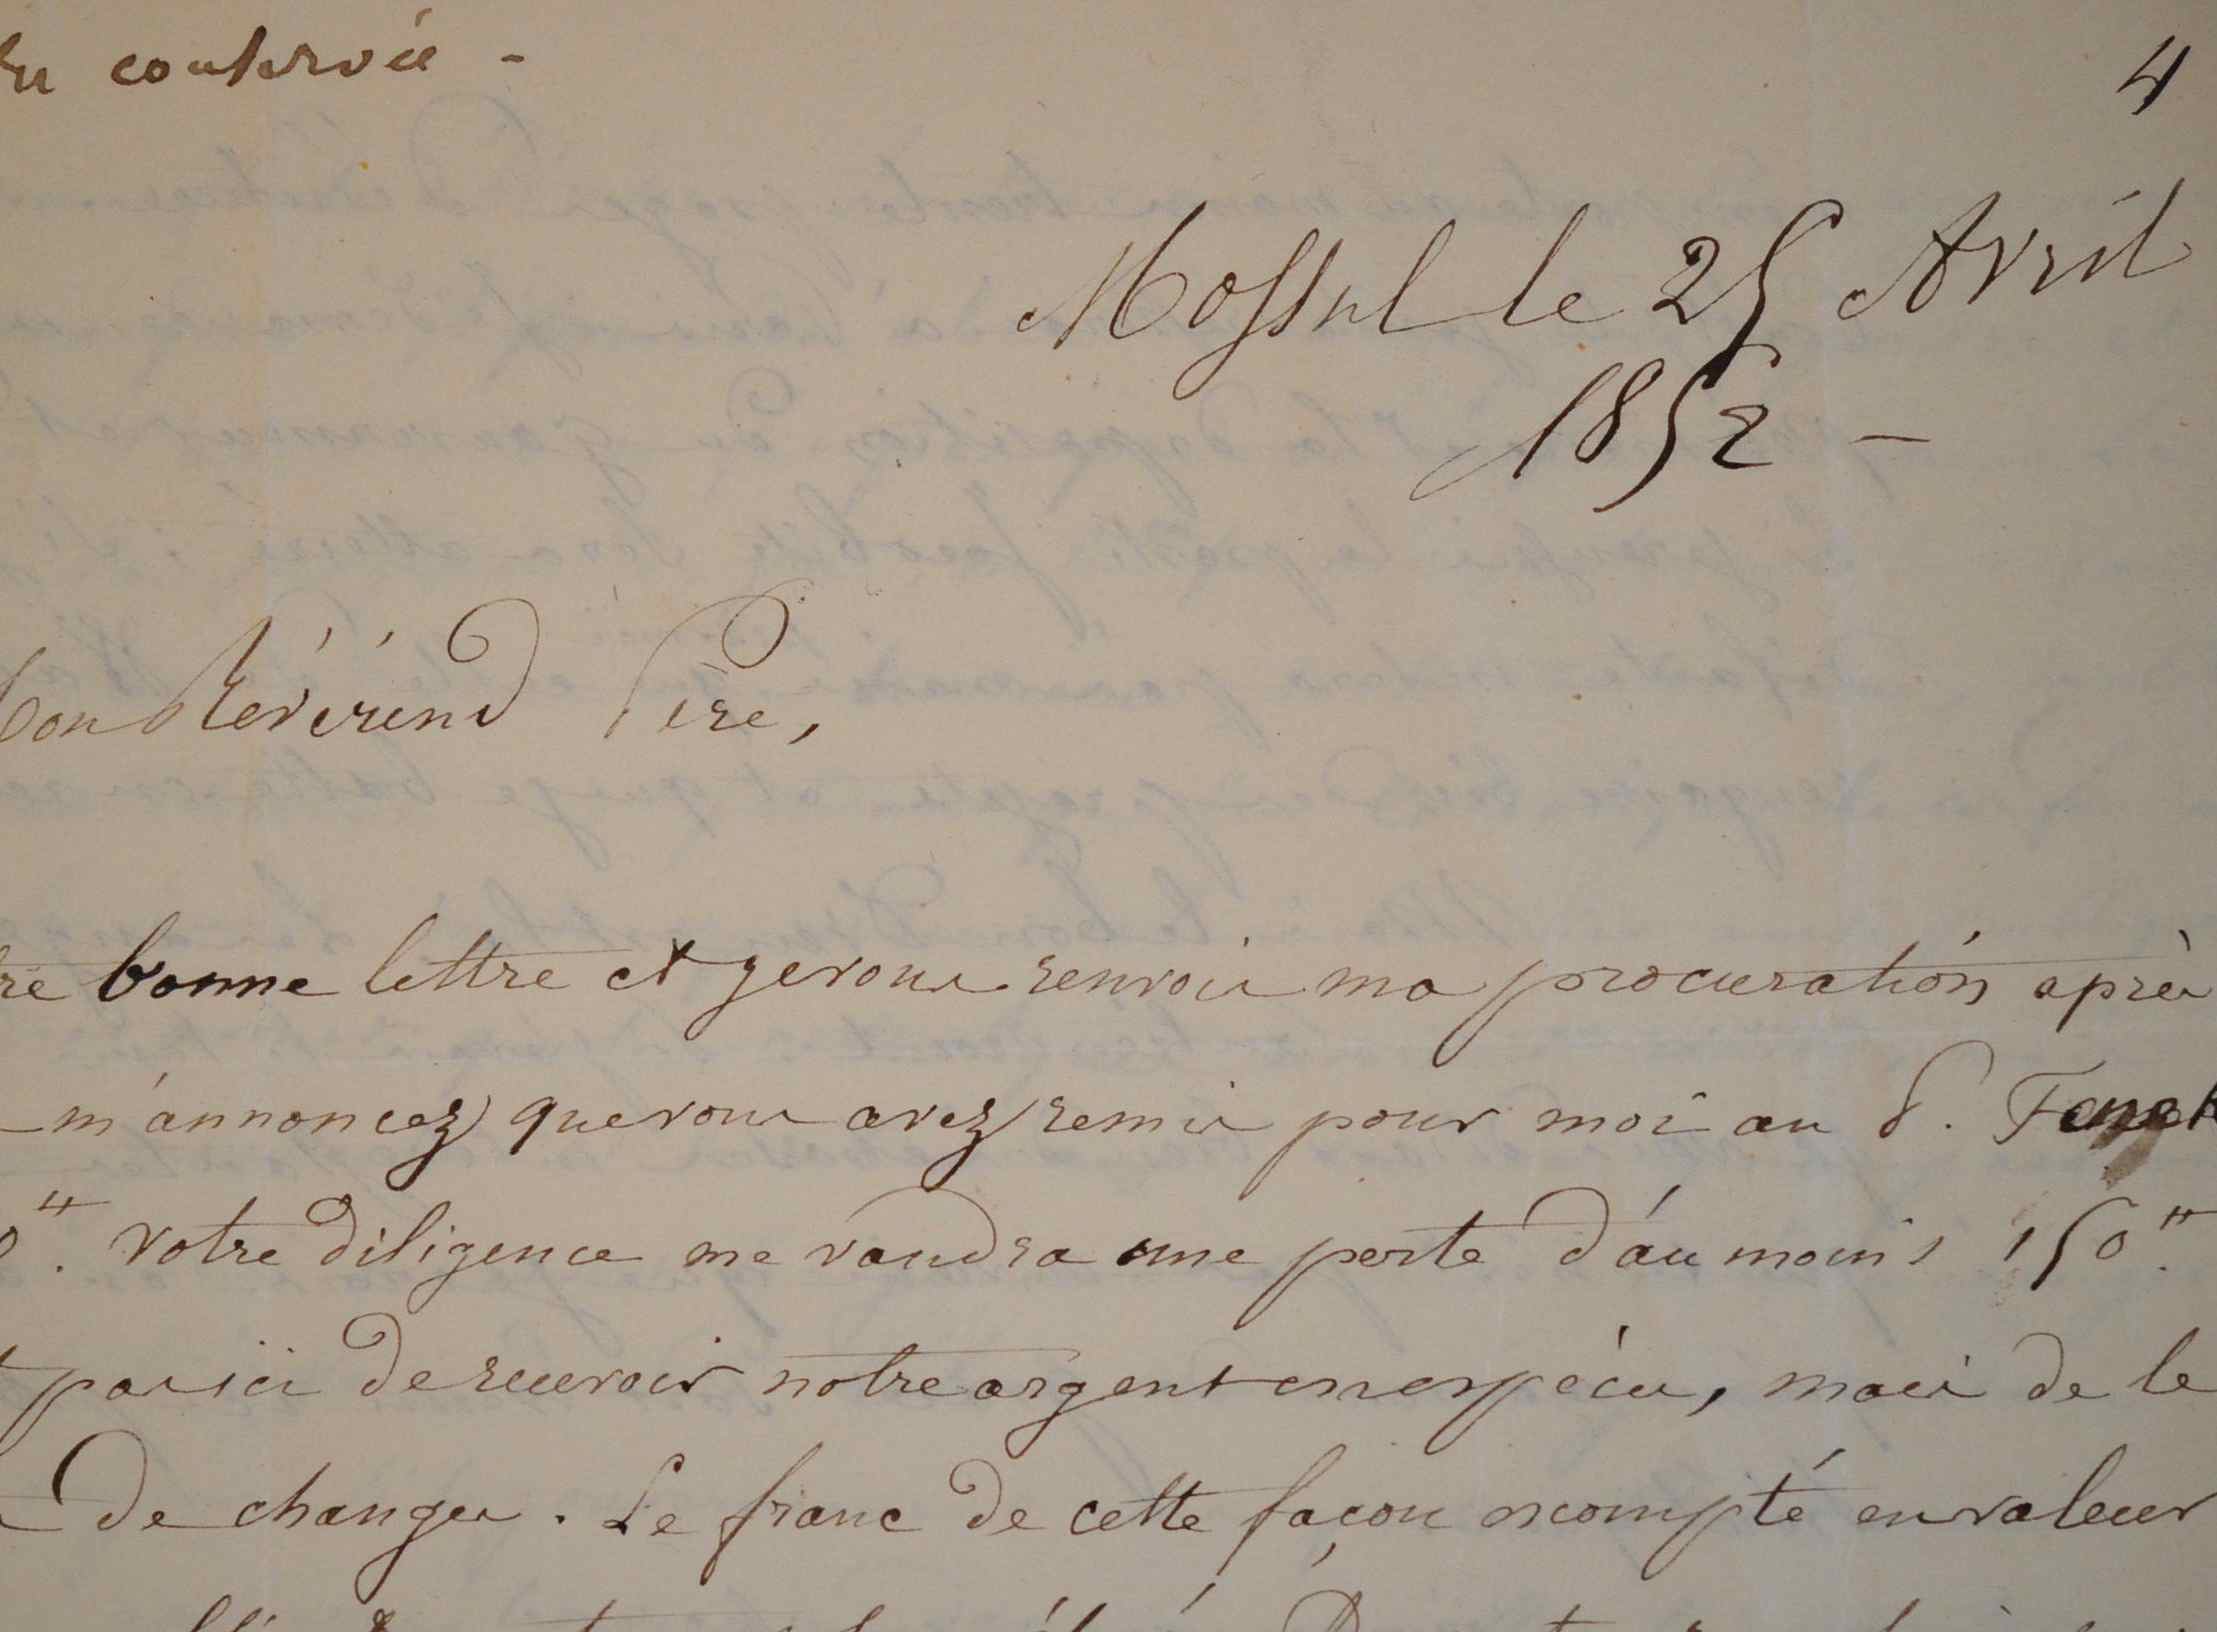 conservée -
4
Mossul le 25 Avril
1852 -
Mon Révérend Père,
bonne lettre et je vous renvoie ma procuration après
m'annoncez que vous avez remis pour moi au P.
Votre diligence me vaudra une perte d'au moins 150#.
par ici de recevoir notre argent en espèces, mais de le
de change. Le franc de cette façon escompté en valeur